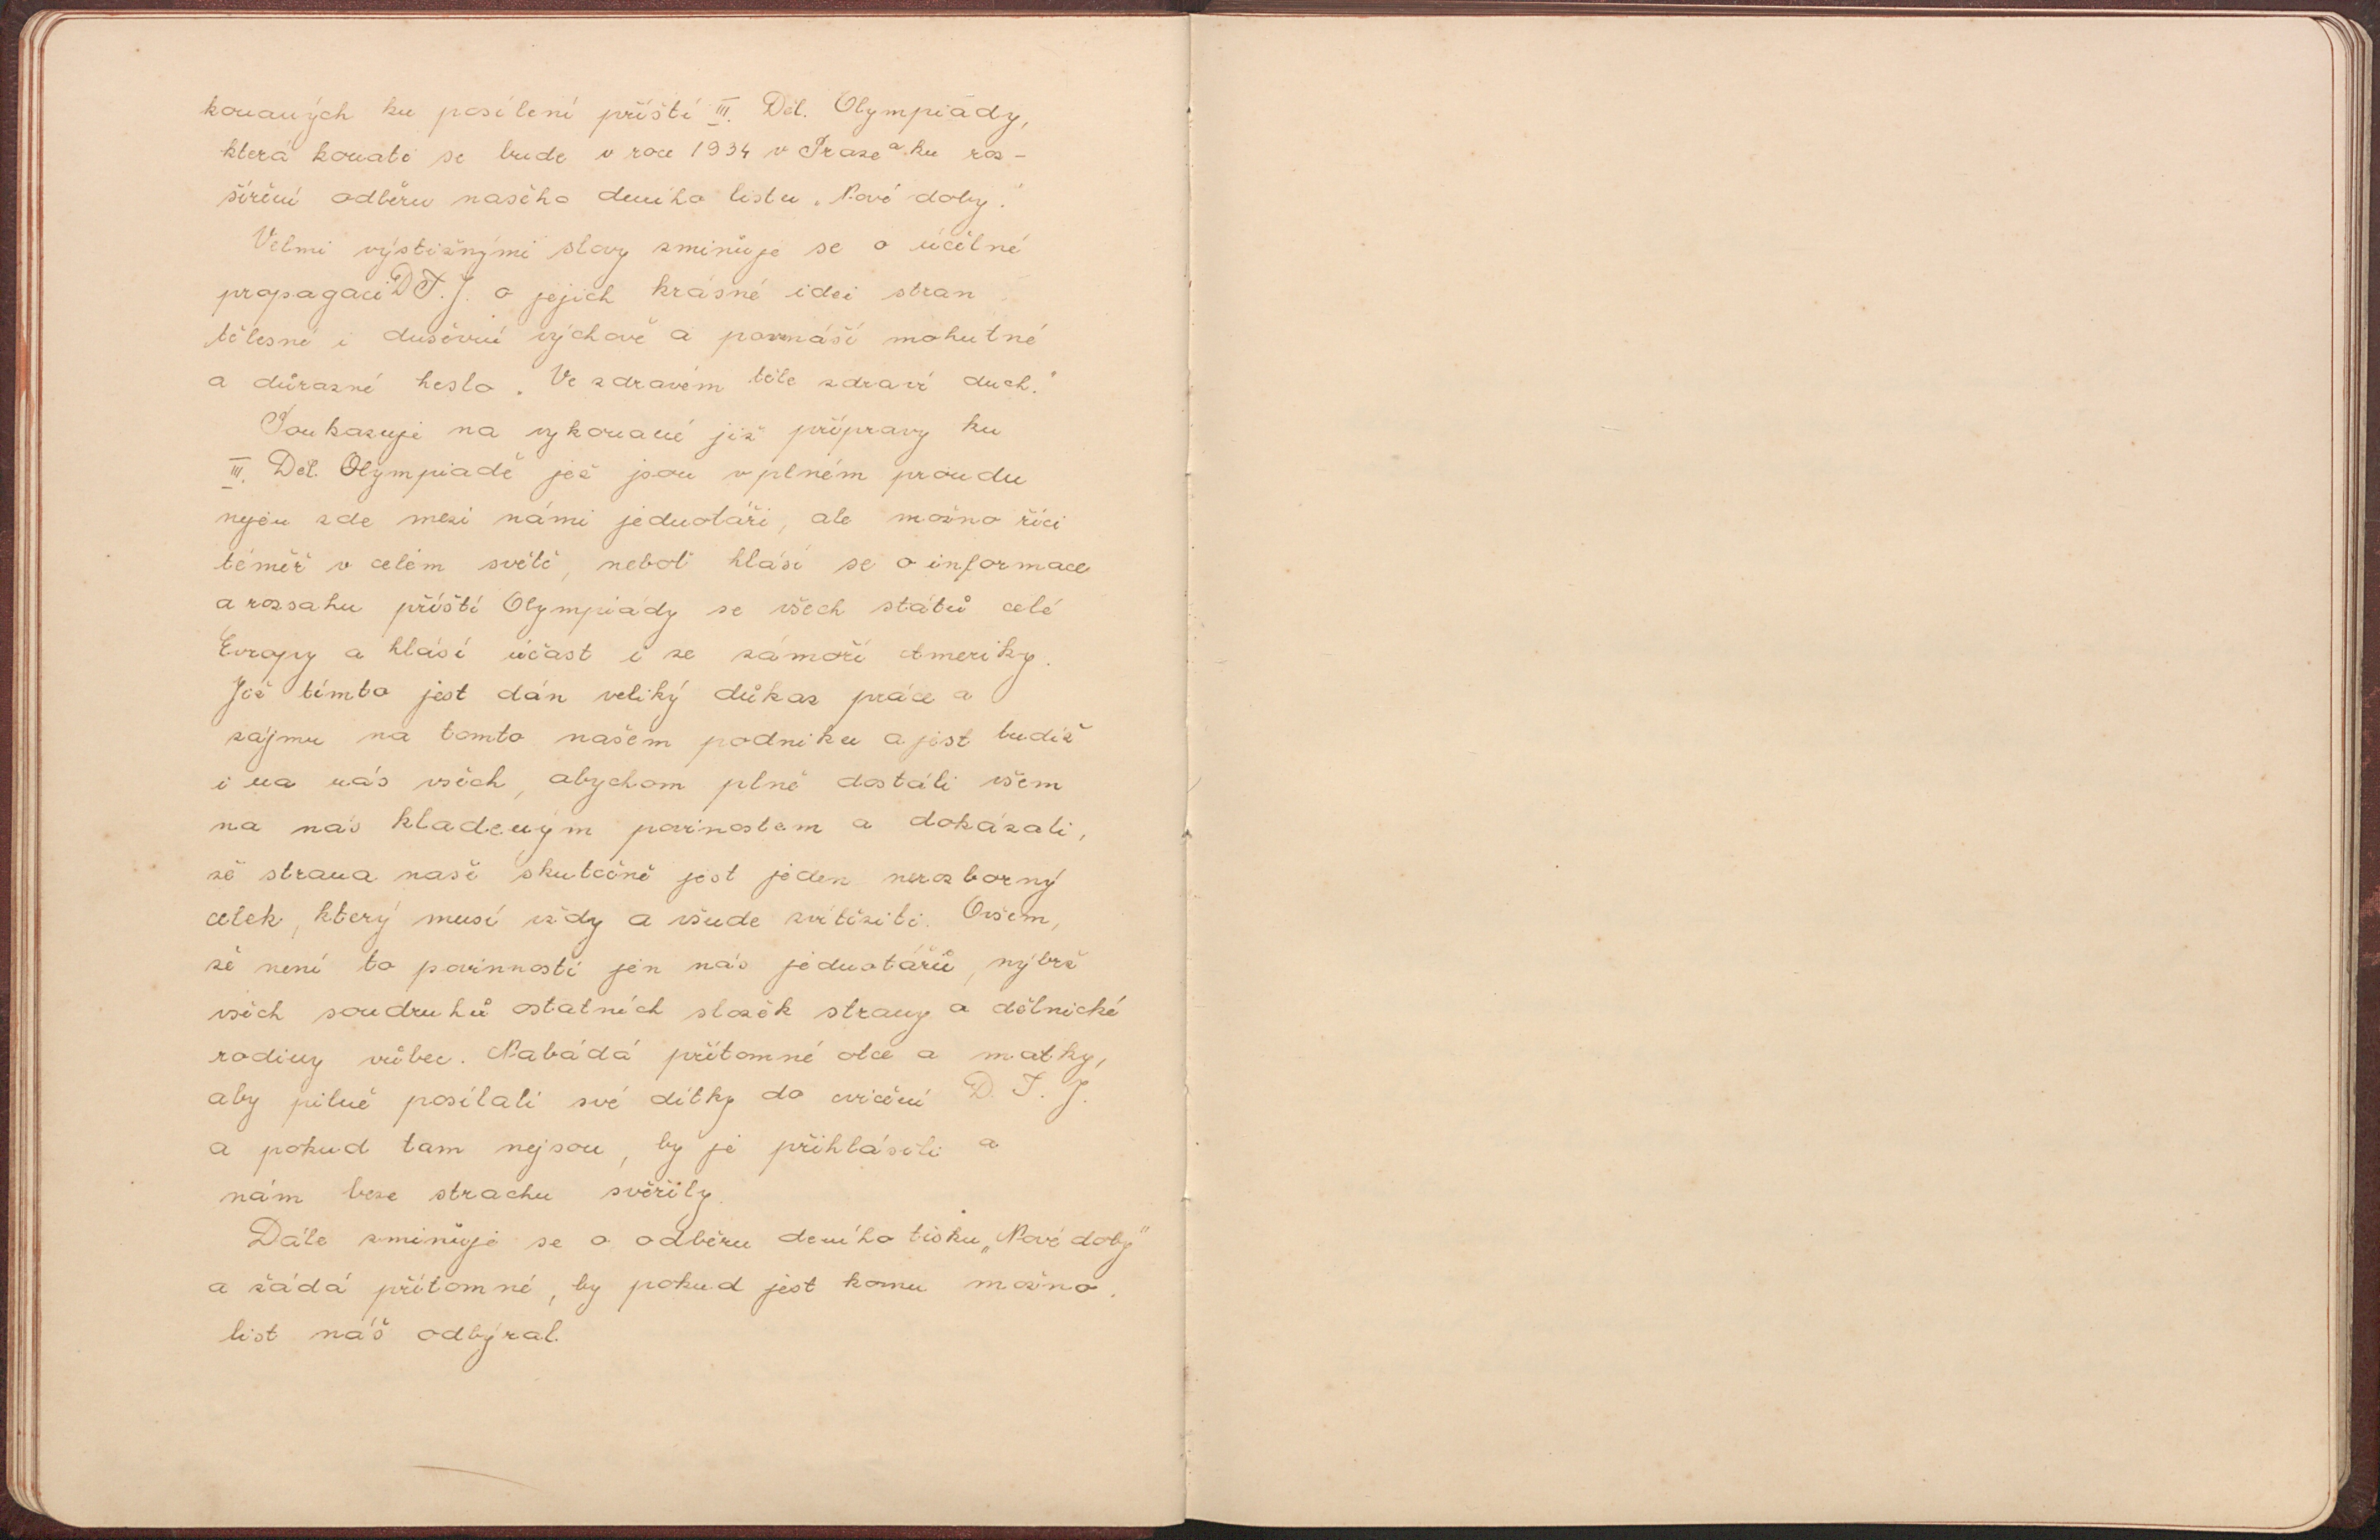 konaných ku posílení příští III. Děl. Olympiády,
která konati se bude v roce 1934 v Praze a ku roz-
šíření odběru našeho deního listu „Nové doby."
Velmi výstižnými slovy zmiňuje se o účelné
propagaci D.T.J. o jejich krásné idei stran
tělesné i duševní výchově a pozvnáší mohutné
a důrazné heslo „Ve zdravém těle zdraví duch."
Poukazuje na vykonané již přípravy ku
III. Děl. Olympiadě jež jsou v plném proudu
nejen zde mezi námi jednotáři, ale možno říci
téměř v celém světě, neboť hlásí se o informace
a rozsahu příští Olympiády se všech států celé
Evropy a hlásí účast i ze zámoří Ameriky.
Již tímto jest dán veliký důkaz práce a
zájmu na tomto našem podniku a jest budiž
i na nás všech, abychom plně dostáli všem
na nás kladeným povinostem a dokázali,
že strana naše skutečně jest jeden nerozborný
celek, který musí vždy a všude zvítěziti. Ovšem,
že není to povinností jen nás jednotářů, nýbrž
všech soudruhů ostatních složek strany a dělnické
rodiny vůbec. Nabádá přítomné otce a matky,
aby pilně posílali své dítky do cvičení D. T. J.
a pokud tam nejsou, by je přihlásili a
nám beze strachu svěřily.
Dále zmiňuje se o odběru deního tisku „Nové doby"
a žádá přítomné, by pokud jest komu možno,
list náš odbýral.